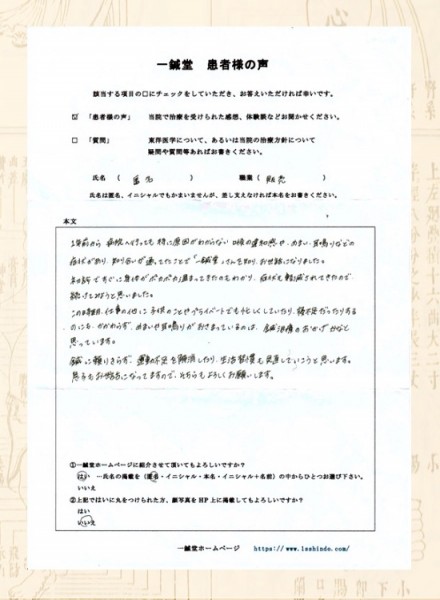 一鍼堂 患者様の声
該当する項目の□にチェックをしていただき、お答えいただければ幸いです。
☑ 「患者様の声」 当院で治療を受けられた感想、体験談などお聞かせください。
□ 「質問」 東洋医学について、あるいは当院の治療方針について
疑問や質問等あればお書きください。
氏名 ( 匿名 ) 職業 ( 販売 )
氏名は匿名、イニシャルでもかまいませんが、差し支えなければ本名をお書きください。
本文
年前から 病院へ行っても 特に原因がわからない 喉の違和感や、めまい、耳鳴りなどの
症状があり、知り合いが通ってたことで「一鍼堂」さんを知り、お世話になりました。
初診ですぐに身体がポカポカ温まってきたのもわかり、症状も軽減されてきたので
続けてみようと思いました。
この時期、仕事の他に子供のことやプライベートでも忙しくしていたり、寝不足だったりする
のにも、かかわらず、めまいや耳鳴りがおさまっているのは、鍼治療のおかげかなと
思っています。
鍼に頼りきらず、運動不足を解消したり、生活習慣も見直していこうと思います。
息子もお世話になってますので、そちらもよろしくお願いします。
①一鍼堂ホームページに紹介させて頂いてもよろしいですか?
はい…氏名の掲載を(匿名・イニシャル・本名・イニシャル+名前)の中からひとつお選び下さい。
いいえ
②上記ではいに丸をつけられた方、顔写真をHP上に掲載してもよろしいですか?
はい
いいえ
一鍼堂ホームページ https://www.isshindo.com/